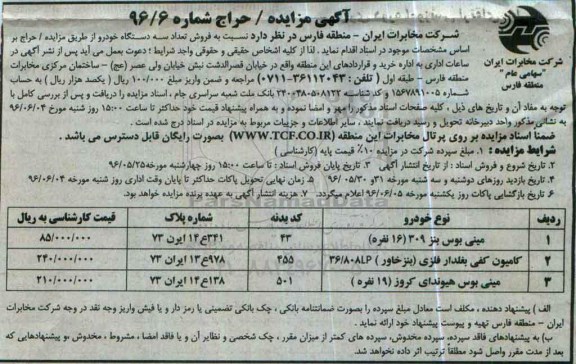 آگهی مزایده / حراج شماره ۹۶/۶
شرکت مخابرات ایران
"سهامی عام"
منطقه فارس
شرکت مخابرات ایران - منطقه فارس در نظر دارد نسبت به فروش تعداد سه دستگاه خودرو از طریق مزایده / حراج بر
اساس مشخصات موجود در اسناد اقدام نماید . لذا از کلیه اشخاص حقیقی و حقوقی واجد شرایط ؛ دعوت بعمل می آید پس از نشر آگهی در
ساعات اداری به اداره خرید و قراردادهای این منطقه واقع در خیابان قصرالدشت نبش خیابان ولی عصر (عج) - ساختمان مرکزی مخابرات
منطقه فارس - طبقه اول ( تلفن : ۳۶۱۱۲۰۴۳-۰۷۱۱) مراجعه و ضمن واریز مبلغ ۱۰۰/۰۰۰ ریال ( یکصد هزار ریال ) به حساب
شماره ۱۵۶۷۸۹۱۰۰۵ و کد شناسه بانک ملت شعبه سراسری جام ، اسناد مزایده را دریافت و پس از بررسی کامل با
توجه به مفاد آن و تاریخ های ذیل ، کلیه صفحات اسناد مذکور را مهر و امضا نموده و به همراه پیشنهاد قیمت خود حداکثر تا ساعت ۱۵:۰۰ روز شنبه مورخ ۹۶/۰۶/۰۴
به نشانی مذکور واحد دبیرخانه تحویل و رسید دریافت نمایند ، سایر اطلاعات و جزییات مربوط به مزایده در اسناد درج شده است .
ضمناً اسناد مزایده بر روی پرتال مخابرات این منطقه (WWW.TCF.CO.IR) بصورت رایگان قابل دسترس می باشد .
شرایط مزایده : ۱. مبلغ سپرده شرکت در مزایده ۱۰٪ قیمت پایه (کارشناسی )
۲. تاریخ شروع و فروش اسناد : از تاریخ انتشار آگهی ۳. تاریخ پایان فروش اسناد : تا ساعت ۱۵:۰۰ روز چهارشنبه مورخه ۹۶/۰۵/۲۵
۴. تاریخ بازدید روزهای دوشنبه و سه شنبه مورخه ۳۰ و ۹۶/۰۵/۳۱ ۵. زمان نهایی تحویل پاکات حداکثر تا پایان وقت اداری روز شنبه مورخه ۹۶/۰۶/۰۴
۶. تاریخ بازگشایی پاکات روز یکشنبه مورخه ۹۶/۰۶/۰۵ اعلام میگردد. ۷. هزینه انتشار آگهی به عهده برنده مزایده خواهد بود.
ردیف نوع خودرو کد بدنه شماره پلاک قیمت کارشناسی به ریال
۱ مینی بوس بنز ۳۰۹ (۱۶ نفره) ۴۳ ۳۴۱ع۱۴ ایران ۷۳ ۸۵/۰۰۰/۰۰۰
۲ کامیون کفی بغلدار فلزی (بنز خاور ) ۳۶/۸۰۸LP ۲۵۵ ۹۷۸ع۱۳ ایران ۷۳ ۲۴۰/۰۰۰/۰۰۰
۳ مینی بوس هیوندای کروز (۱۹ نفره ) ۵۰۱ ۱۳۸ع۱۴ ایران ۷۳ ۲۱۰/۰۰۰/۰۰۰
الف ) پیشنهاد دهنده ، مکلف است معادل مبلغ سپرده را بصورت ضمانتنامه بانکی ، چک بانکی تضمینی یا رمز دار و یا فیش واریز وجه نقد در وجه شرکت مخابرات
ایران - منطقه فارس تهیه و پیوست پیشنهاد خود ارائه نماید .
ب) به پیشنهادهای فاقد سپرده، سپرده مخدوش، سپرده های کمتر از میزان مقرر ، چک شخصی و نظایر آن و یا فاقد امضا ، مشروط ، مخدوش ،و پیشنهادهایی که
بعد از مدت مقرر واصل شود مطلقاً ترتیب اثر داده نخواهد شد.